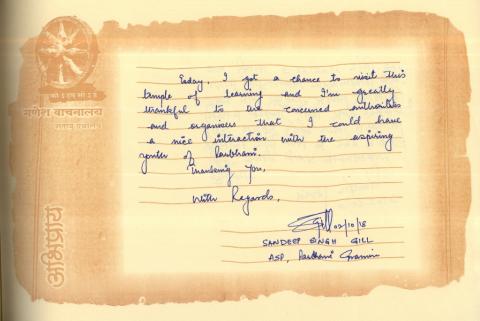 गणेश वाचनालय
अभिप्राय
Today, I got a chance to visit this
temple of learning and I'm greatly
thankful to the concerned authorities
and organisers that I could have
a nice interaction with the aspiring
youth of Parbhani.
Thanking You,
With Regards,
Gill 02/10/18
SANDEEP SINGH GILL
ASP, Parbhani Gramin